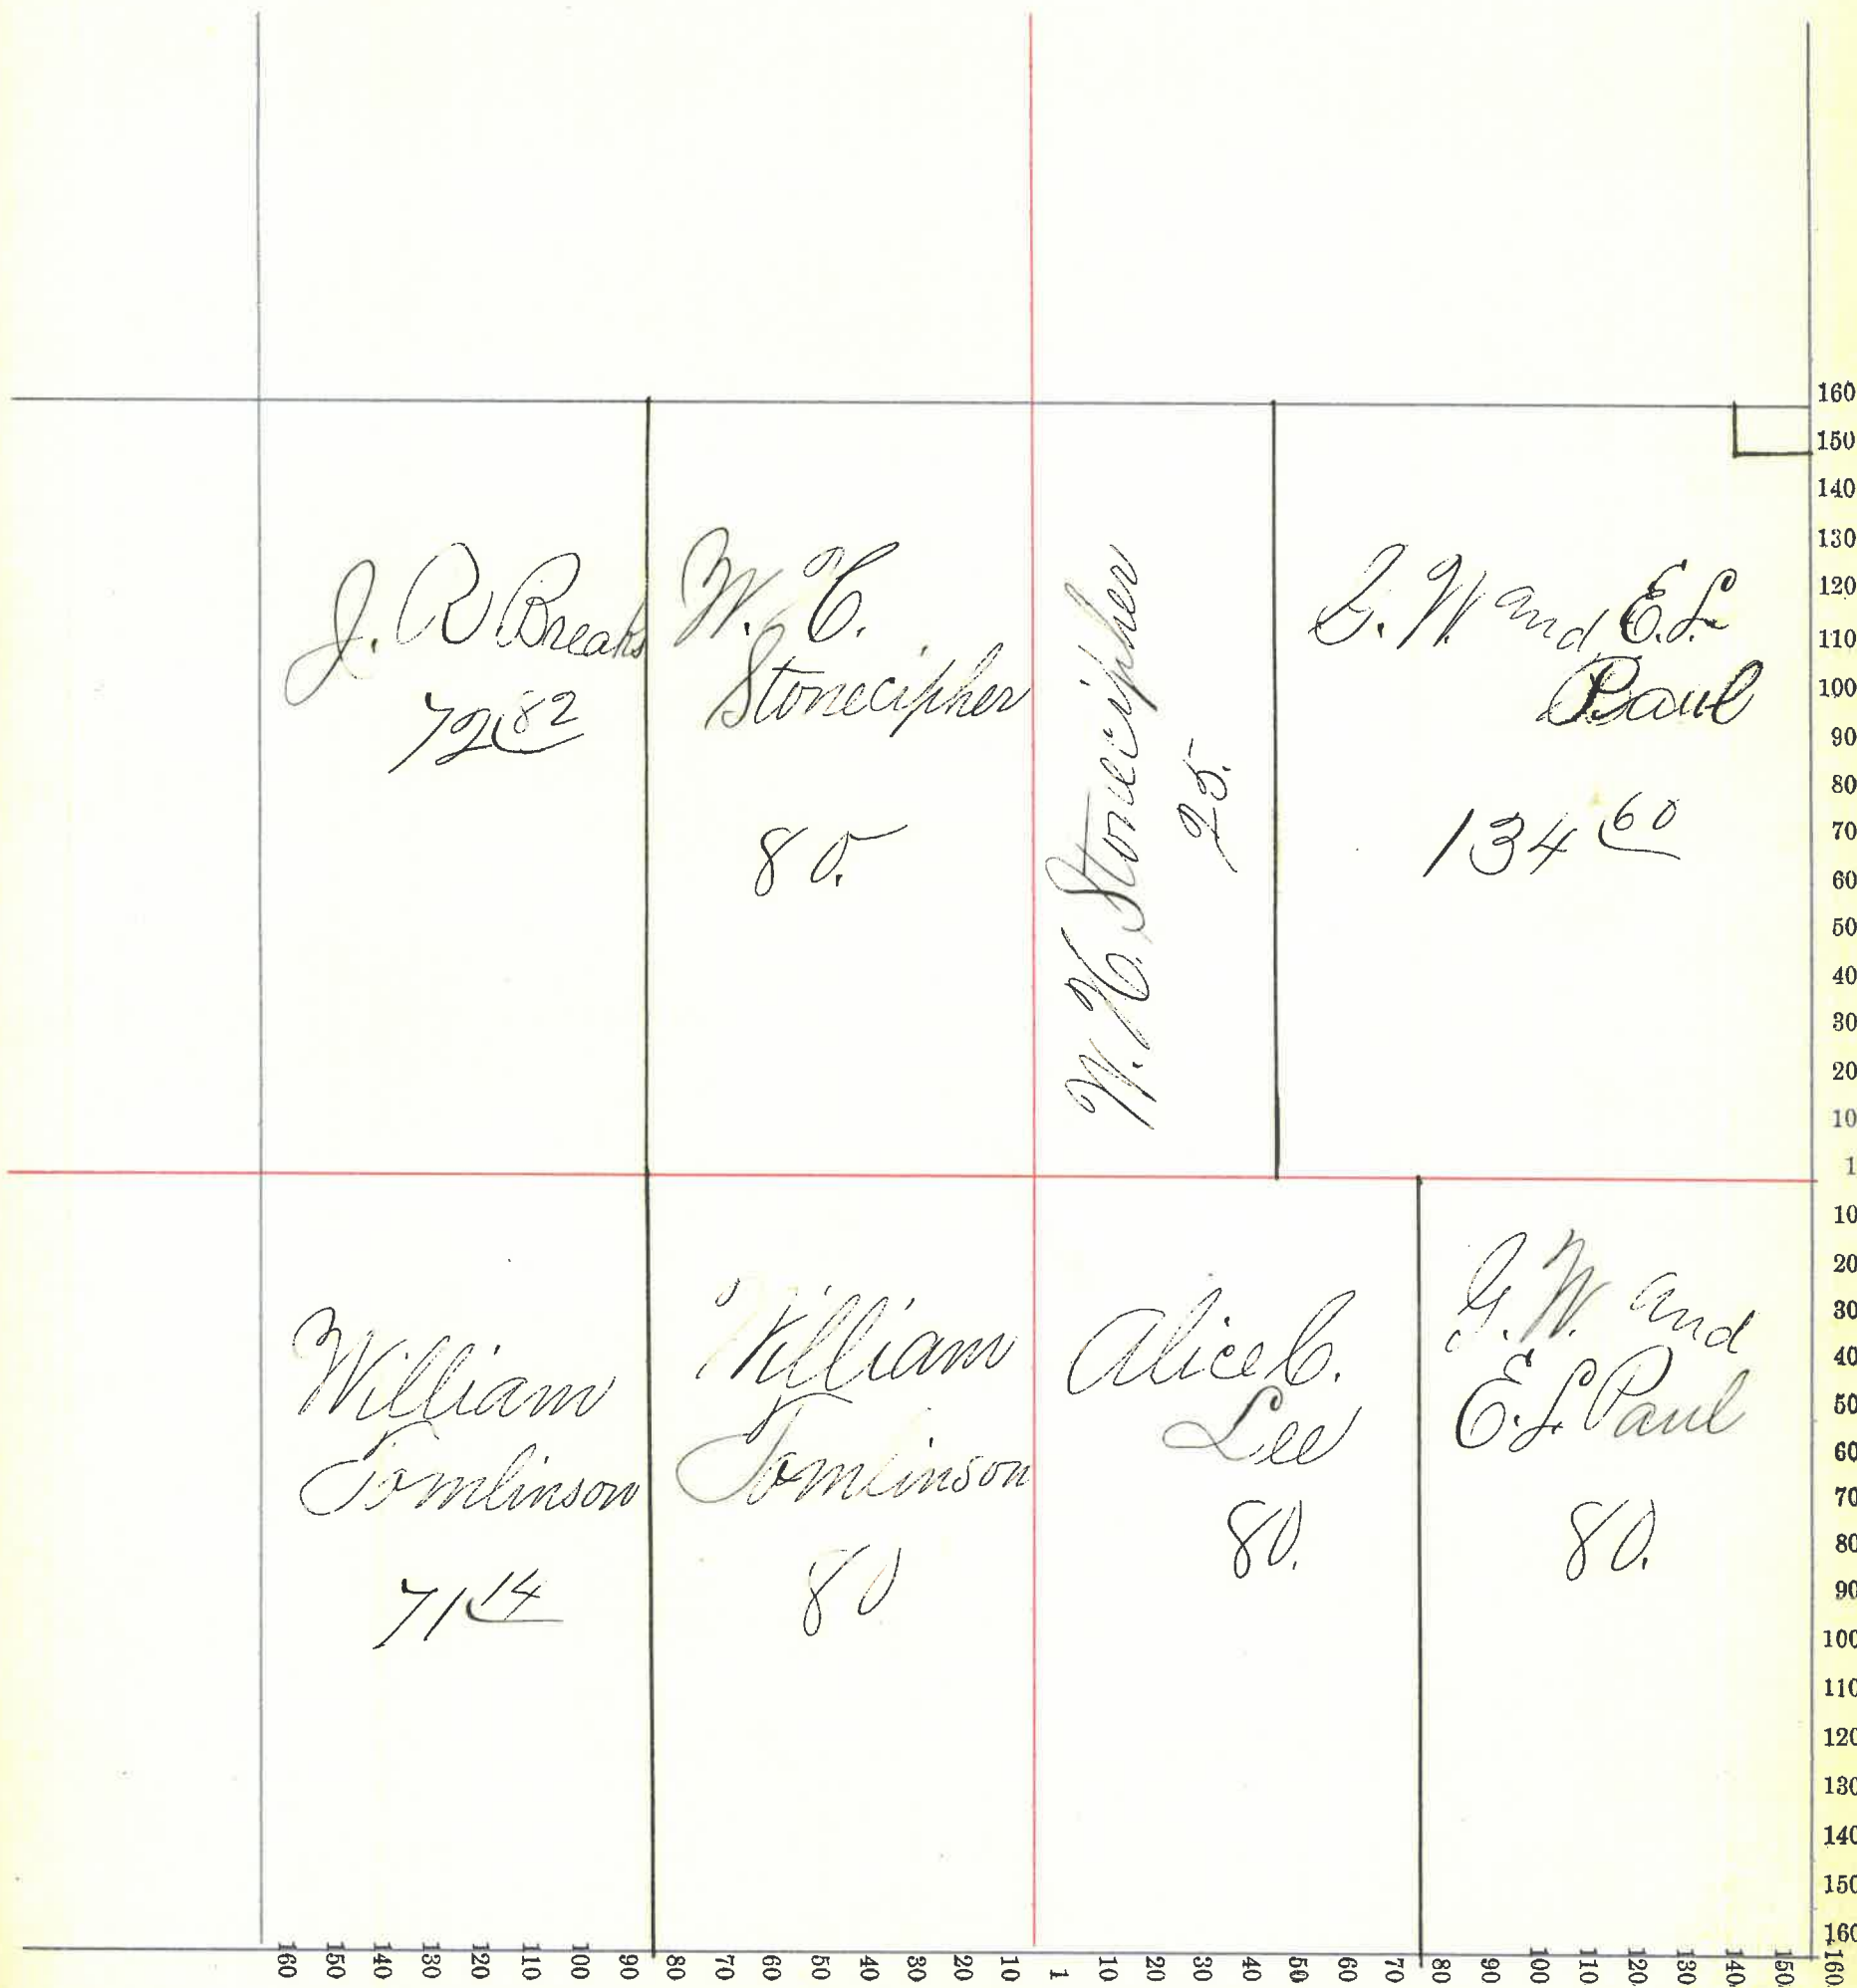 J. R. Breaks
72.82
W. C.
Stonecipher
80.
W. H. Stonecipher
25.
G. W. and E. L.
Paul
134.60
William
Tomlinson
71.14
William
Tomlinson
80
Alice C.
Lee
80.
G. W. and
E. L. Paul
80.
160
150
140
130
120
110
100
90
80
70
60
50
40
30
20
10
1
10
20
30
40
50
60
70
80
90
100
110
120
130
140
150
160
160 150 140 130 120 110 100 90 80 70 60 50 40 30 20 10 1 10 20 30 40 50 60 70 80 90 100 110 120 130 140 150 160